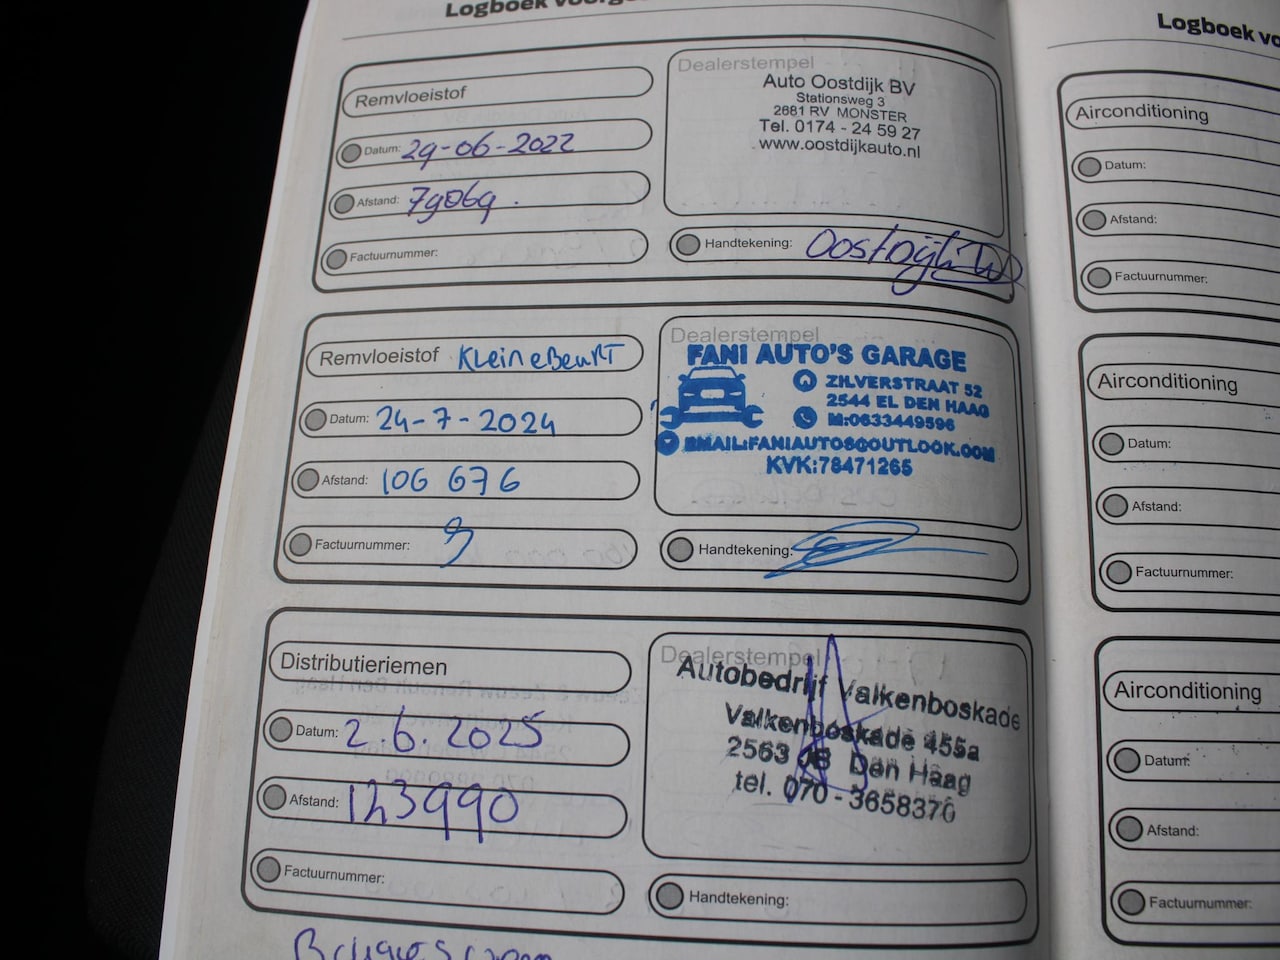 Logboek
Remvloeistof
Datum: 29-06-2022
Afstand: 79069.
Factuurnummer:
Dealerstempel
Auto Oostdijk BV
Stationsweg 3
2681 RV MONSTER
Tel. 0174 - 24 59 27
www.oostdijkauto.nl
Handtekening: Oostdijk
Remvloeistof KleineBeurT
Datum: 24-7-2024
Afstand: 106 676
Factuurnummer:
Dealerstempel
FANI AUTO'S GARAGE
ZILVERSTRAAT 52
2544 EL DEN HAAG
M:0633449596
EMAIL:FANIAUTOS@OUTLOOK.COM
KVK:78471265
Handtekening:
Distributieriemen
Datum: 2.6.2025
Afstand: 123990
Factuurnummer:
Dealerstempel
Autobedrijf Valkenboskade
Valkenboskade 455a
2563 JB Den Haag
tel. 070 - 3658370
Handtekening:
Logboek
Airconditioning
Datum:
Afstand:
Factuurnummer:
Airconditioning
Datum:
Afstand:
Factuurnummer:
Airconditioning
Datum:
Afstand:
Factuurnummer: